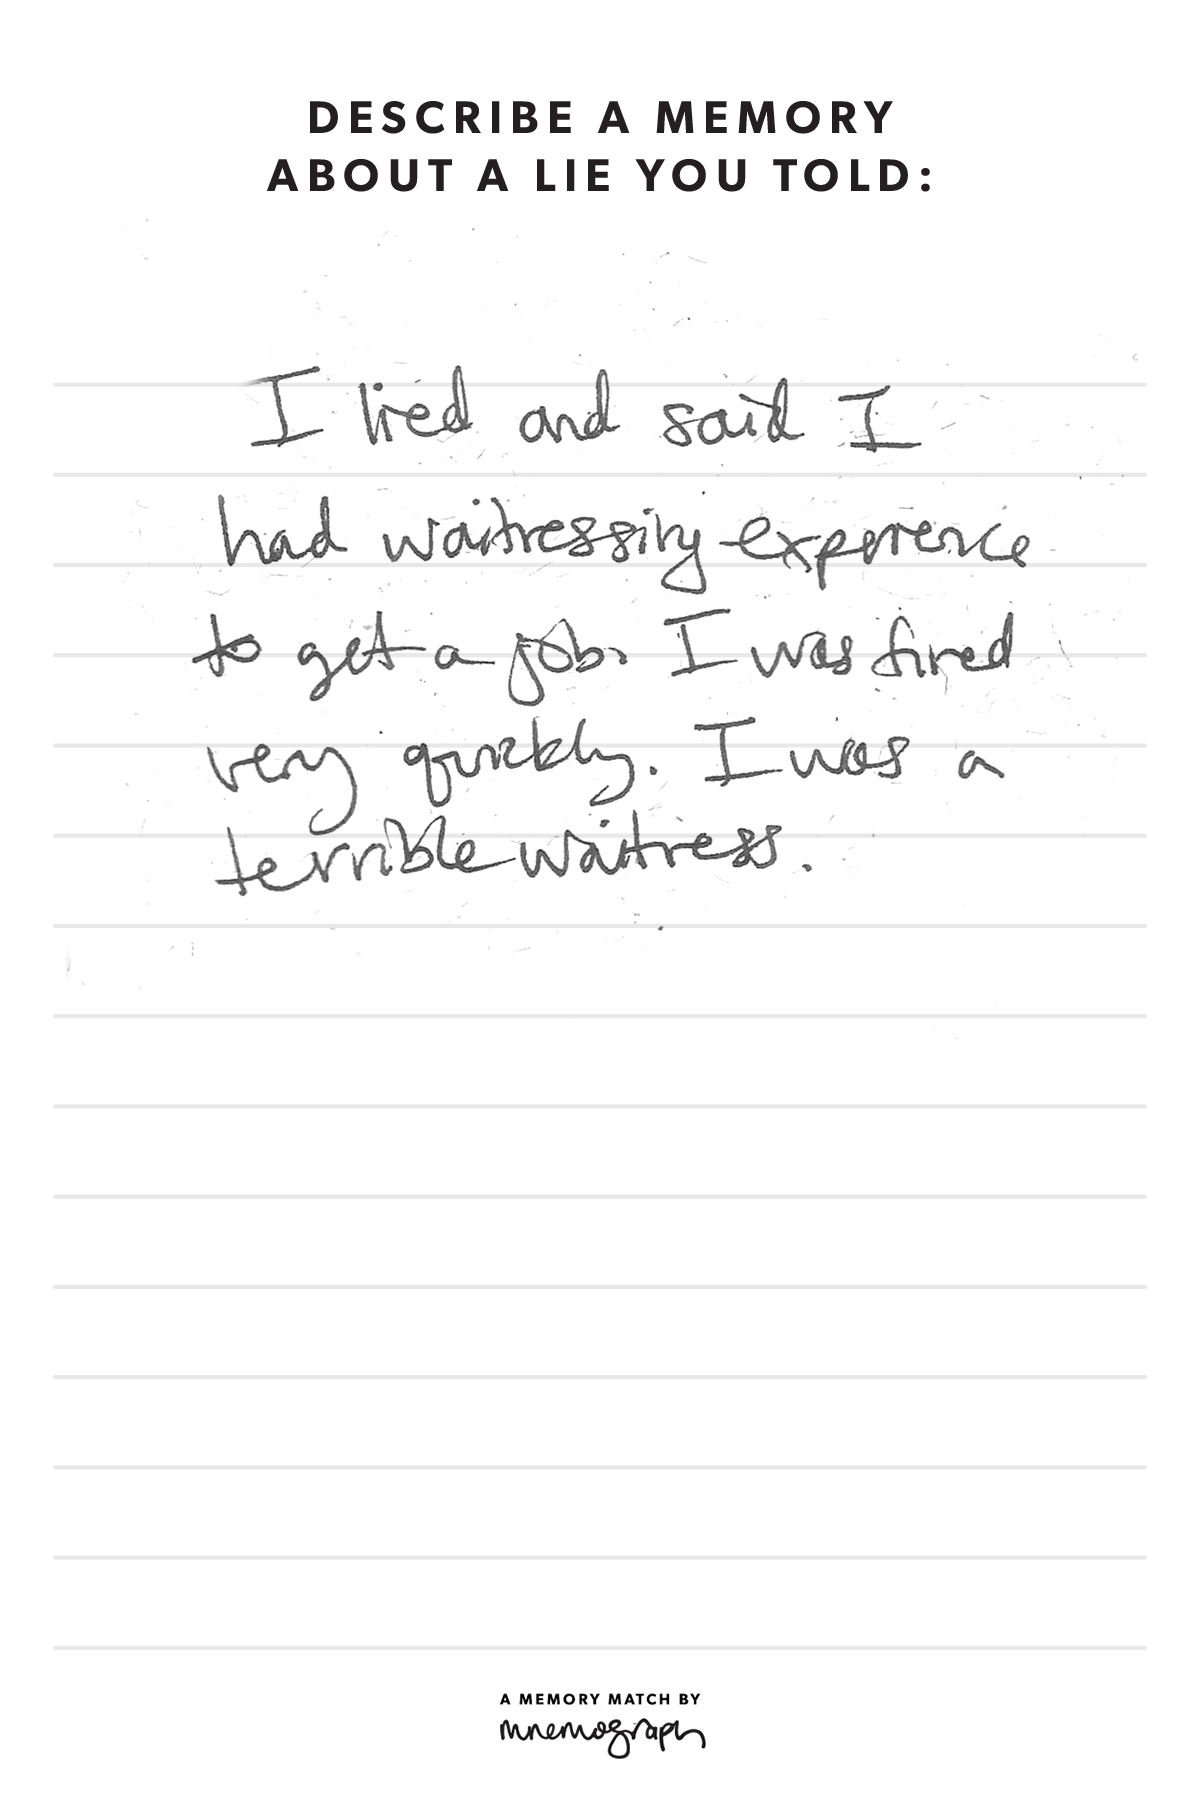 DESCRIBE A MEMORY
ABOUT A LIE YOU TOLD:
I lied and said I
had waitressing experience
to get a job. I was fired
very quickly. I was a
terrible waitress.
A MEMORY MATCH BY
mnemograph